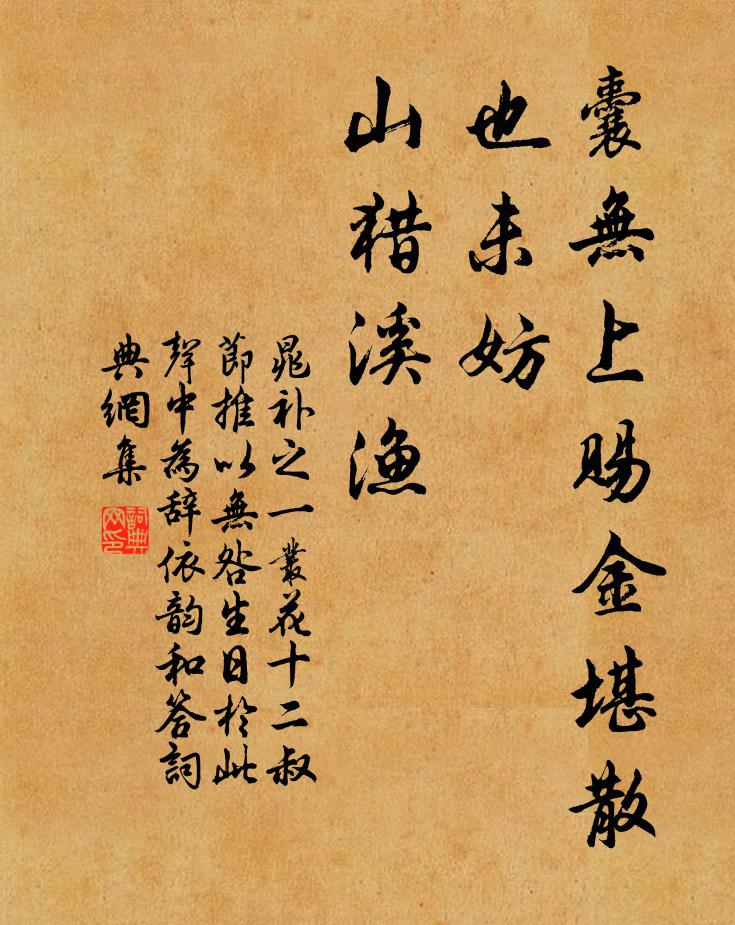 囊無上賜金堪散
也未妨
山猎溪漁
晁补之一叢花十二叔
節推以無咎生日於此
聲中為辞依韵和答詞
典網集
詞典網印